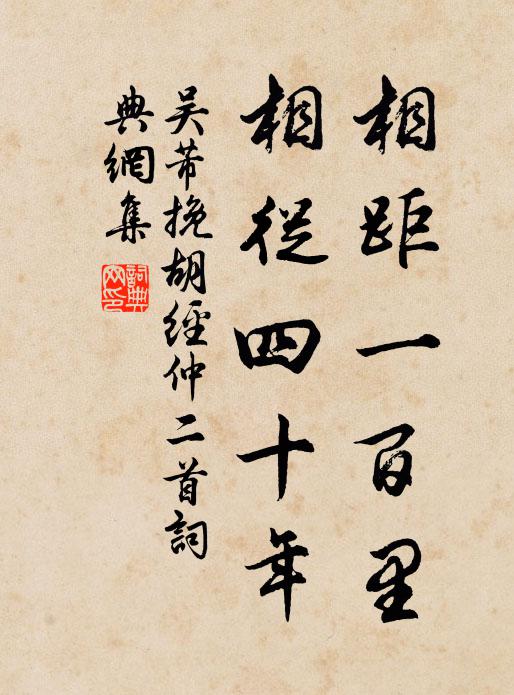 相距一百里
相從四十年
吴芾挽胡經仲二首詞
典網集
詞典
网印